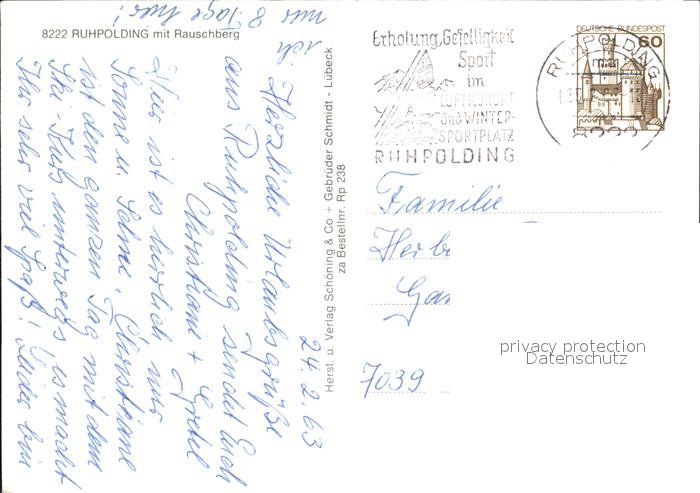 8222 RUHPOLDING mit Rauschberg
24. 2. 63
Herzliche Urlaubsgrüße
aus Ruhpolding sendet Euch
Christiane + Gretel
Hier ist es herrlich nur
Sonne u. Schnee, Christiane
ist den ganzen Tag mit dem
Ski-Kurs unterwegs es macht
Ihr sehr viel Spaß! Leider bin
ich nur 8 Tage hier!
Herst. u. Verlag Schöning & Co + Gebrüder Schmidt - Lübeck
za Bestellnr. Rp 238
Erholung, Geselligkeit
Sport
im
LUFTKURORT
und WINTER-
SPORTPLATZ
RUHPOLDING
DEUTSCHE BUNDESPOST
60
RUHPOLDING
8222
Familie
Herb
Gar
7039
privacy protection
Datenschutz